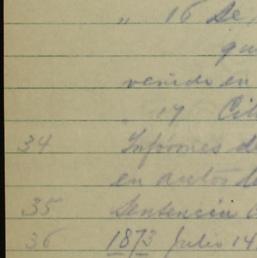 „ 16 Se
qu
venido en
„ 17 Cit
34 Informes de
en autos de
35 Sentencia
36 1873 Julio 14